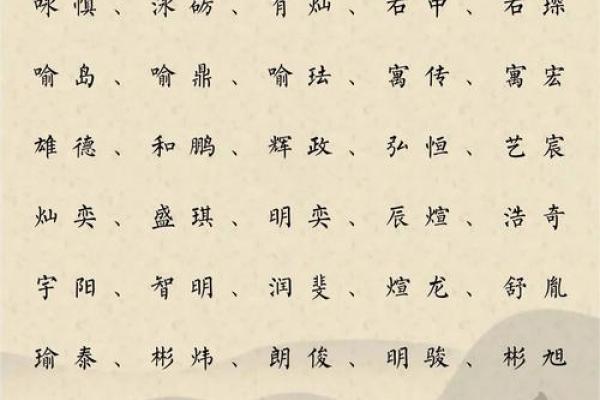 咏慎、泳砺、有灿、若申、若琛
喻岛、喻鼎、喻珐、寓传、寓宏
雄德、和鹏、辉政、弘恒、艺宸
灿奕、盛琪、明奕、辰煊、浩奇
宇阳、智明、润斐、煊龙、舒胤
瑜泰、彬炜、朗俊、明骏、彬旭